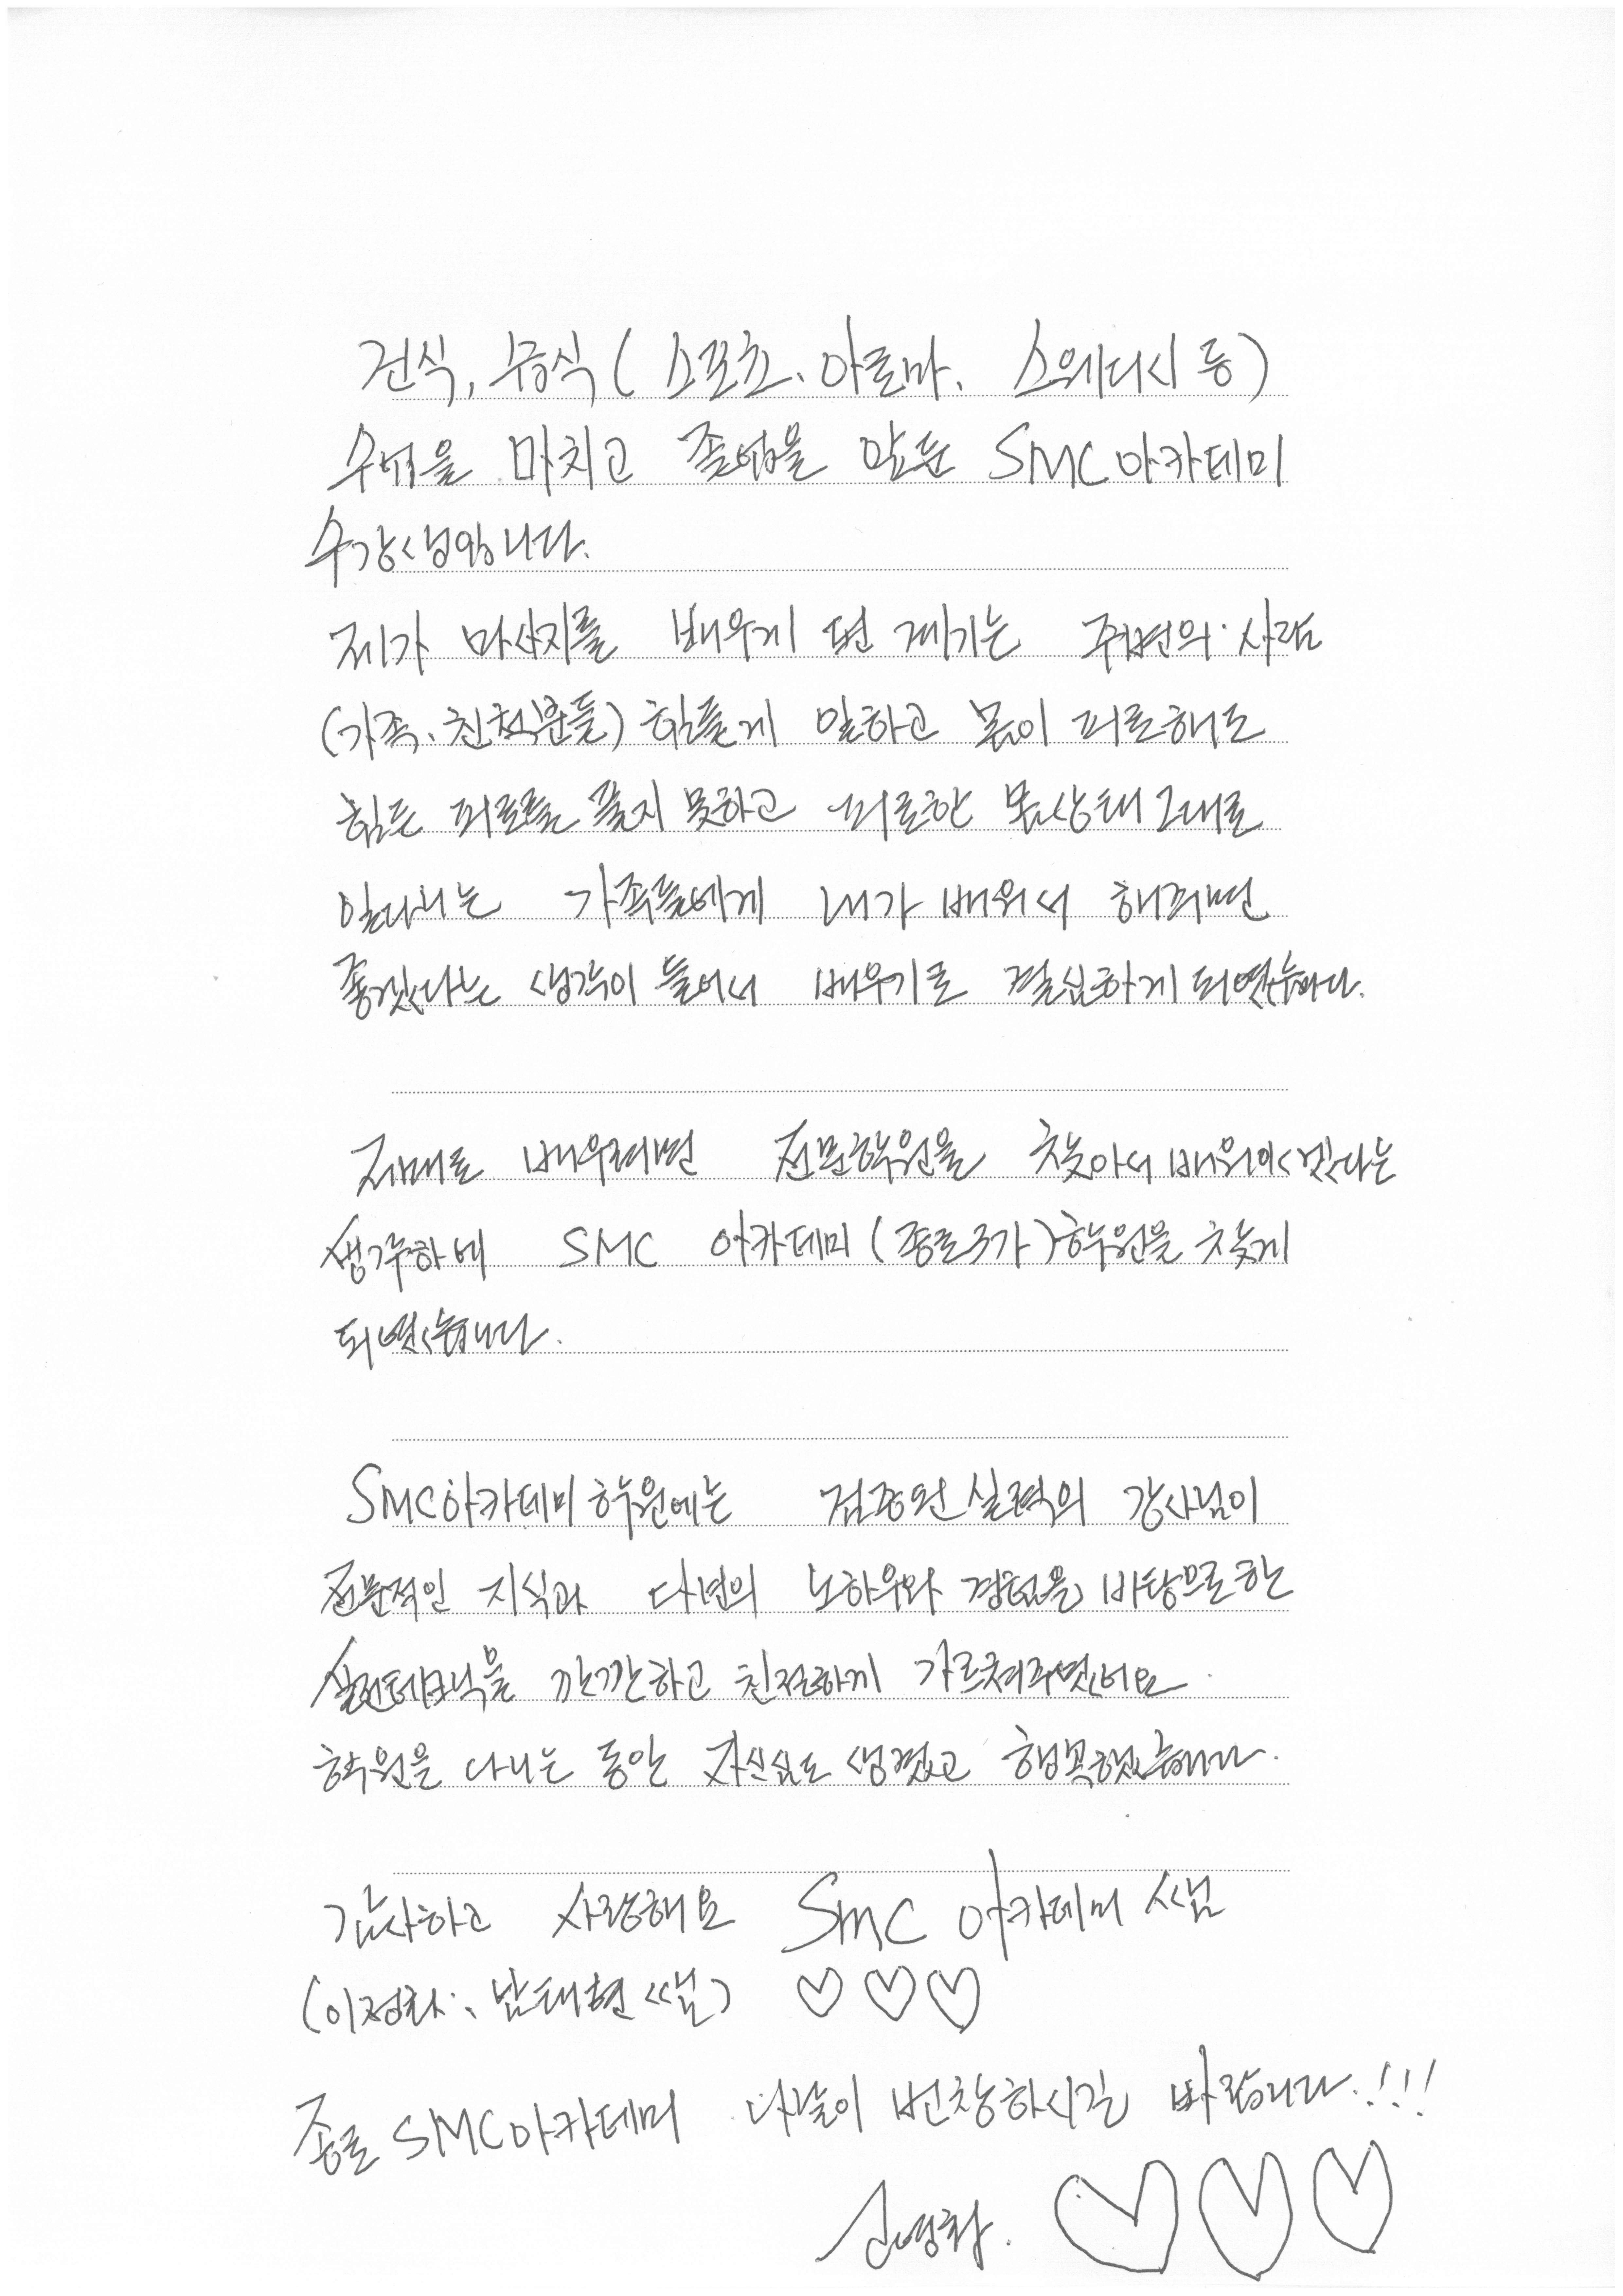 건식, 습식( 스포츠、아로마、 스웨디시 등)
수업을 마치고 졸업을 앞둔 SMC아카데미
수강생입니다.
제가 마사지를 배우게 된 계기는 주변의 사람
(가족、친척분들) 힘들게 일하고 몸이 피로해도
힘든 피로를 풀지 못하고 피로한 몸상태 그대로
일다니는 가족들에게 내가 배워서 해주면
좋겠다는 생각이 들어서 배우기로 결심하게 되였습니다.
제대로 배우려면 전문학원을 찾아서 배워야겠다는
생각하에 SMC 아카데미(종로3가)학원을 찾게
되였습니다.
SMC아카데미 학원에는 검증된 실력의 강사님이
전문적인 지식과 다년의 노하우와 경험을 바탕으로한
실전테크닉을 깐깐하고 친절하게 가르쳐주셨어요.
학원을 다니는 동안 자신심도 생겼고 행복했습니다.
감사하고 사랑해요 SMC 아카데미 쌤
(이정화、남태현 쌤) ♡♡♡
종로 SMC아카데미 나날이 번창하시길 바랍니다.!!!
♡♡♡